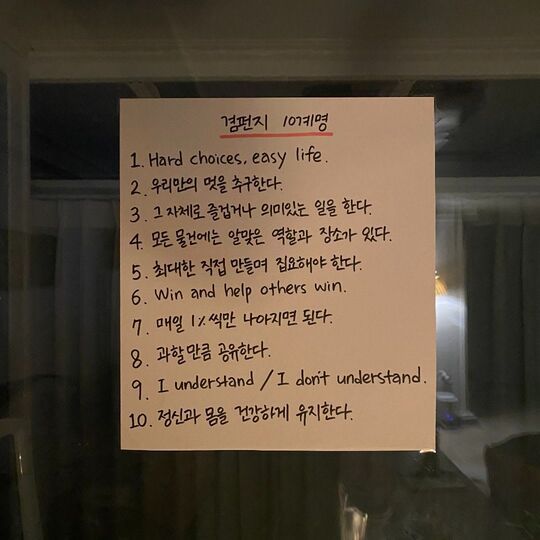 겸편지 10계명
1. Hard choices, easy life.
2. 우리만의 멋을 추구한다.
3. 그 자체로 즐겁거나 의미있는 일을 한다.
4. 모든 물건에는 알맞은 역할과 장소가 있다.
5. 최대한 직접 만들며 집요해야 한다.
6. Win and help others win.
7. 매일 1%씩만 나아지면 된다.
8. 과할만큼 공유한다.
9. I understand / I don't understand.
10. 정신과 몸을 건강하게 유지한다.